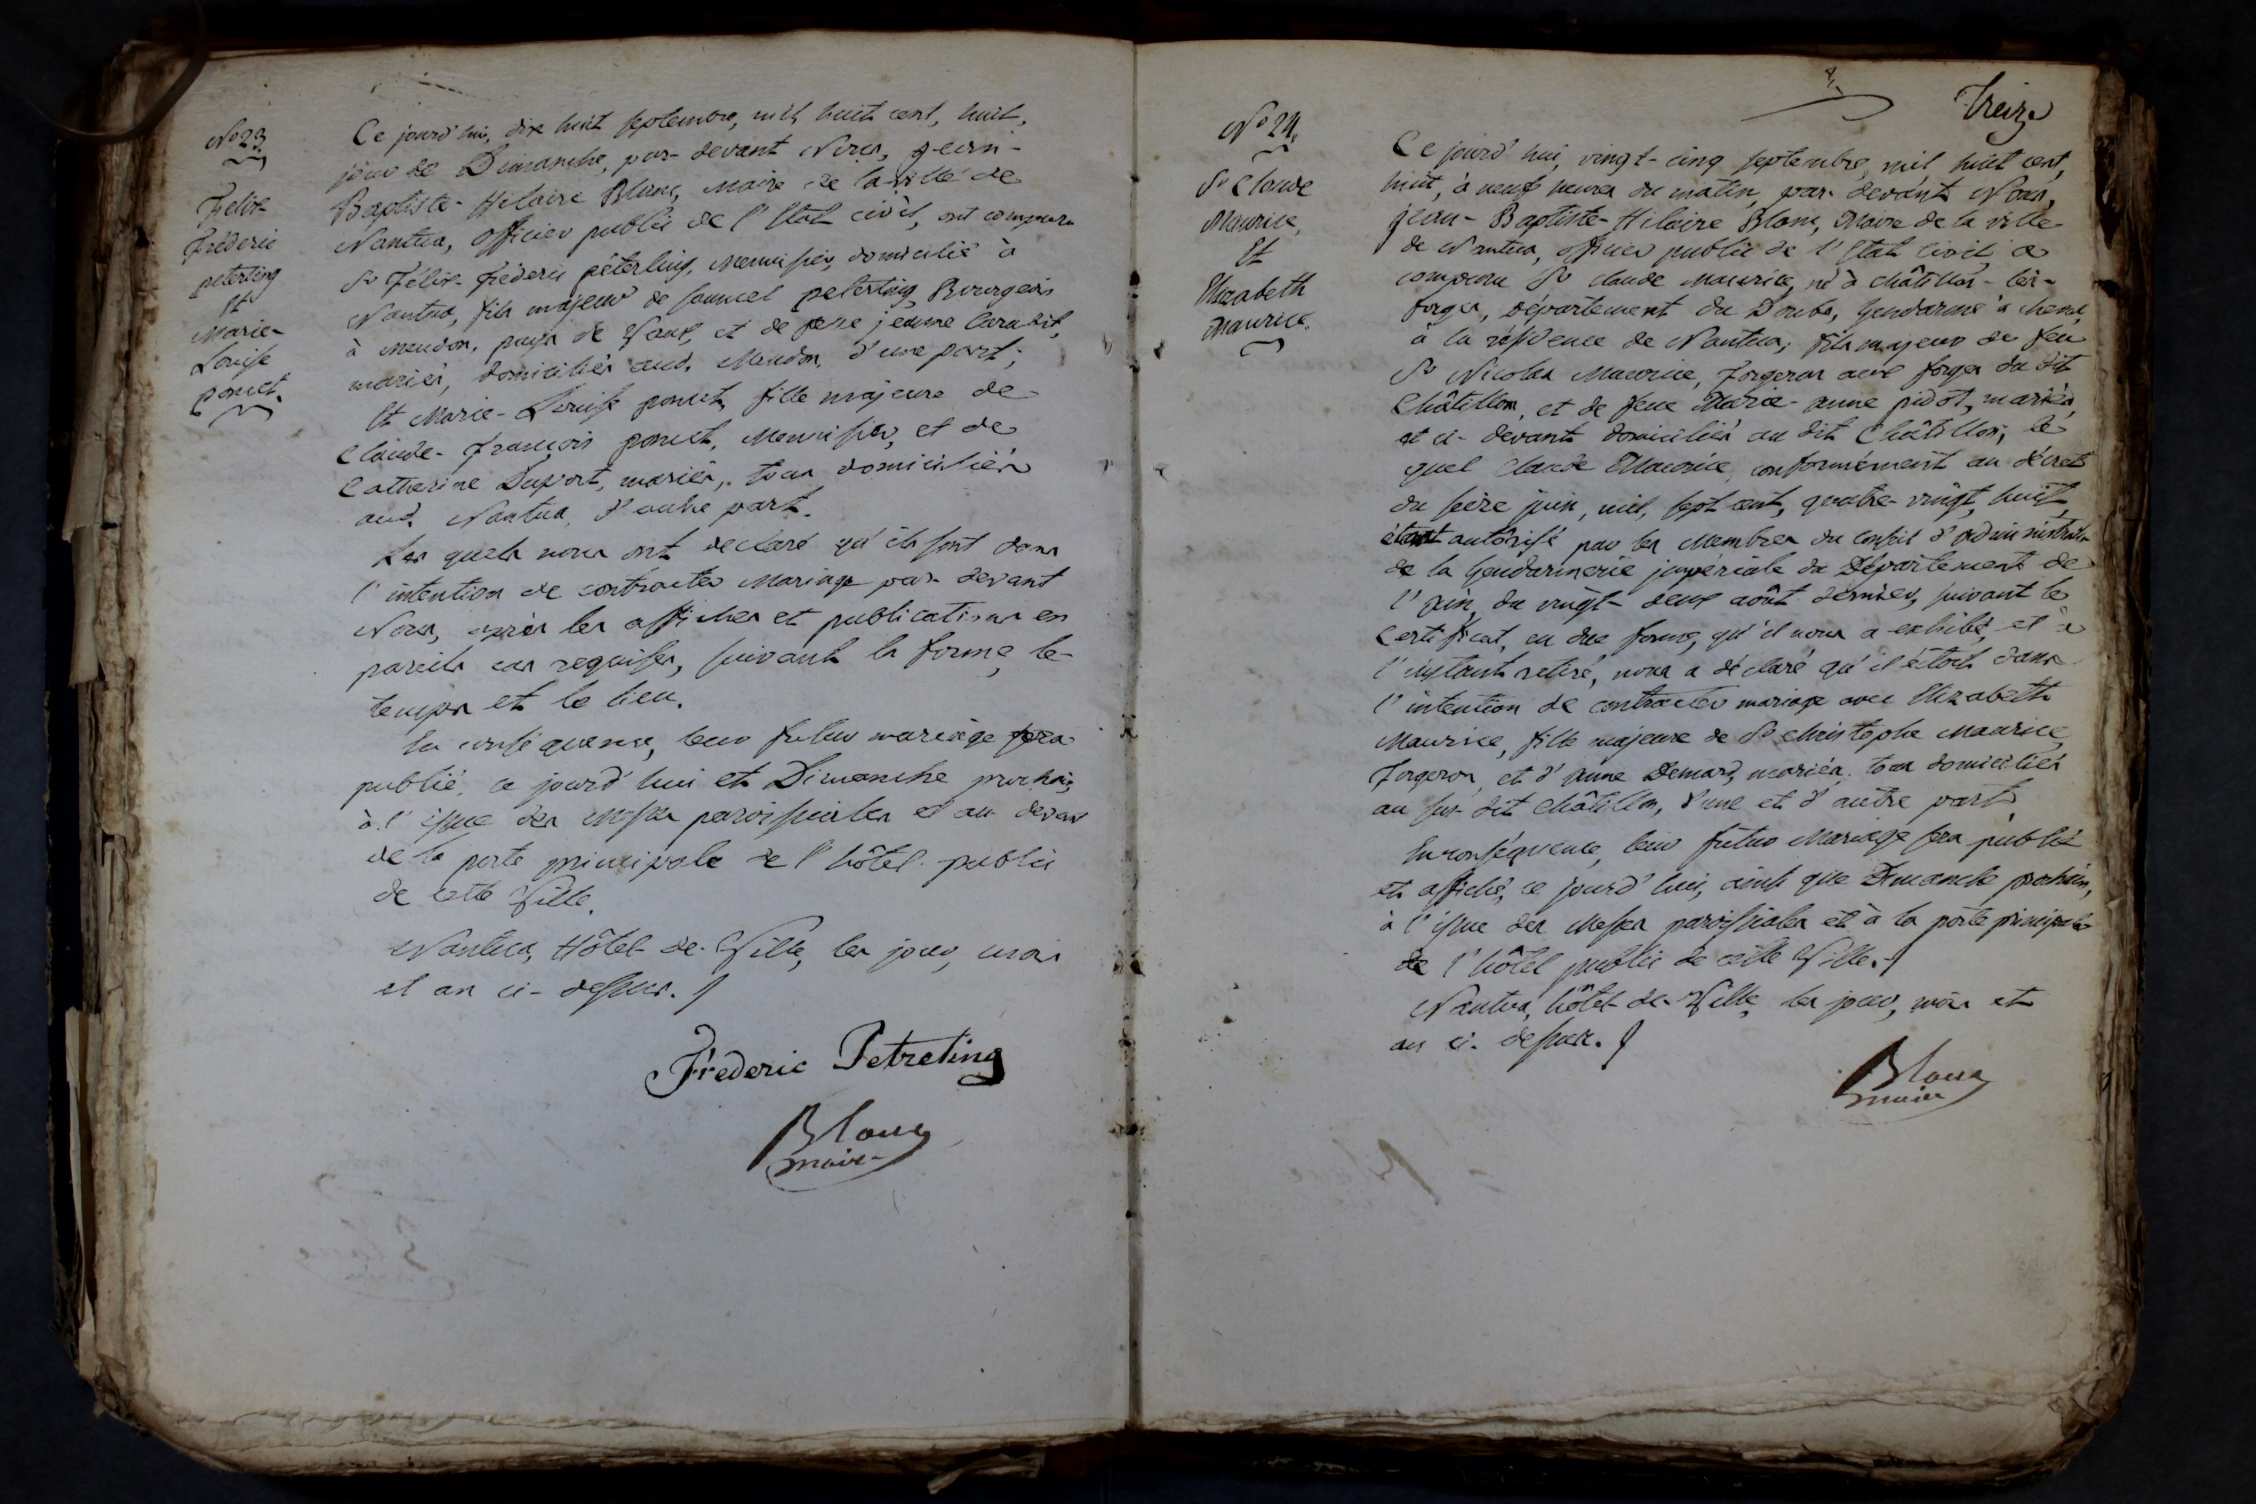 No 23
Felix
Fréderic
peterling
Et
Marie-
Louise
ponset.
Ce jourd'hui, dix huit septembre, mil huit cent, huit,
jour de Dimanche, par-devant Nous, jean-
Baptiste-Hilaire Blanc, Maire de la ville de
Nantua, officier public de l'Etat civil, ont comparu
Sr Félix-fréderic péterling, Menuisier, domicilié à
Nantua, fils majeur de samuel peterling Bourgeois
à Meudon, pays de Vaux, et de
mariés, domiciliés aud. Meudon, d'une part;
Et Marie-Louise ponset, fille majeure de
Claude-françois ponset, Menuisier, et de
Catherine Duport, mariés, tous domiciliés
aud. Nantua, d'autre part.
Les quels nous ont declaré qu'ils sont dans
l'intention de contracter Mariage par-devant
Nous, après les affiches et publications en
pareils cas requises, suivant la forme, le
temps et le lieu.
En conséquence, leur futur mariage sera
publié, ce jourd'hui et Dimanche prochain,
à l'issue des Messes paroissiales et au devant
de la porte principale de l'hôtel public
de cette Ville.
Nantua, Hôtel de Ville, les jour, mois
et an ci-dessus.
Fréderic Petreling
Blanc
maire
Treize
No 24.
Sr Claude
Maurice,
Et
Elizabeth
Maurice.
Ce jourd'hui, vingt-cinq septembre, mil huit cent,
huit, à neuf heures du matin, par-devant Nous,
jean-Baptiste-Hilaire Blanc, Maire de la ville
de Nantua, officier public de l'Etat Civil, a
comparu Sr claude Maurice, né à châtillon-les-
forges, département du Doubs, Gendarme à cheval,
à la résidence de Nantua, fils majeur de feu
Sr Nicolas Maurice, forgeron aux forges du dit
Châtillon, et de feue Marie-anne pidot, mariés,
et ci-devant domiciliés au dit Châtillon; le
quel Claude Maurice, conformément au décret
du seize juin, mil, sept cent, quatre-vingt, huit,
étant autorisé par les Membres du Conseil d'administration
de la Gendarmerie jmperiale du Département de
l'ain, du vingt-deux août dernier, suivant le
Certificat, en due forme, qu'il nous a exhibé, et à
l'instant retiré, nous a déclaré qu'il étoit dans
l'intention de contracter mariage avec Elizabeth
Maurice, fille majeure de Sr christophe Maurice,
forgeron, et d'anne Demard, mariés, tous domiciliés
au sus-dit Châtillon, d'une et d'autre part.
En conséquence, leur futur Mariage sera publié
et affiché, ce jourd'hui, ainsi que Dimanche prochain,
à l'issue des Messes paroissiales et à la porte principale
de l'hôtel public de cette Ville.
Nantua, hôtel de Ville, les jour, mois et
an ci-dessus.
Blanc
maire